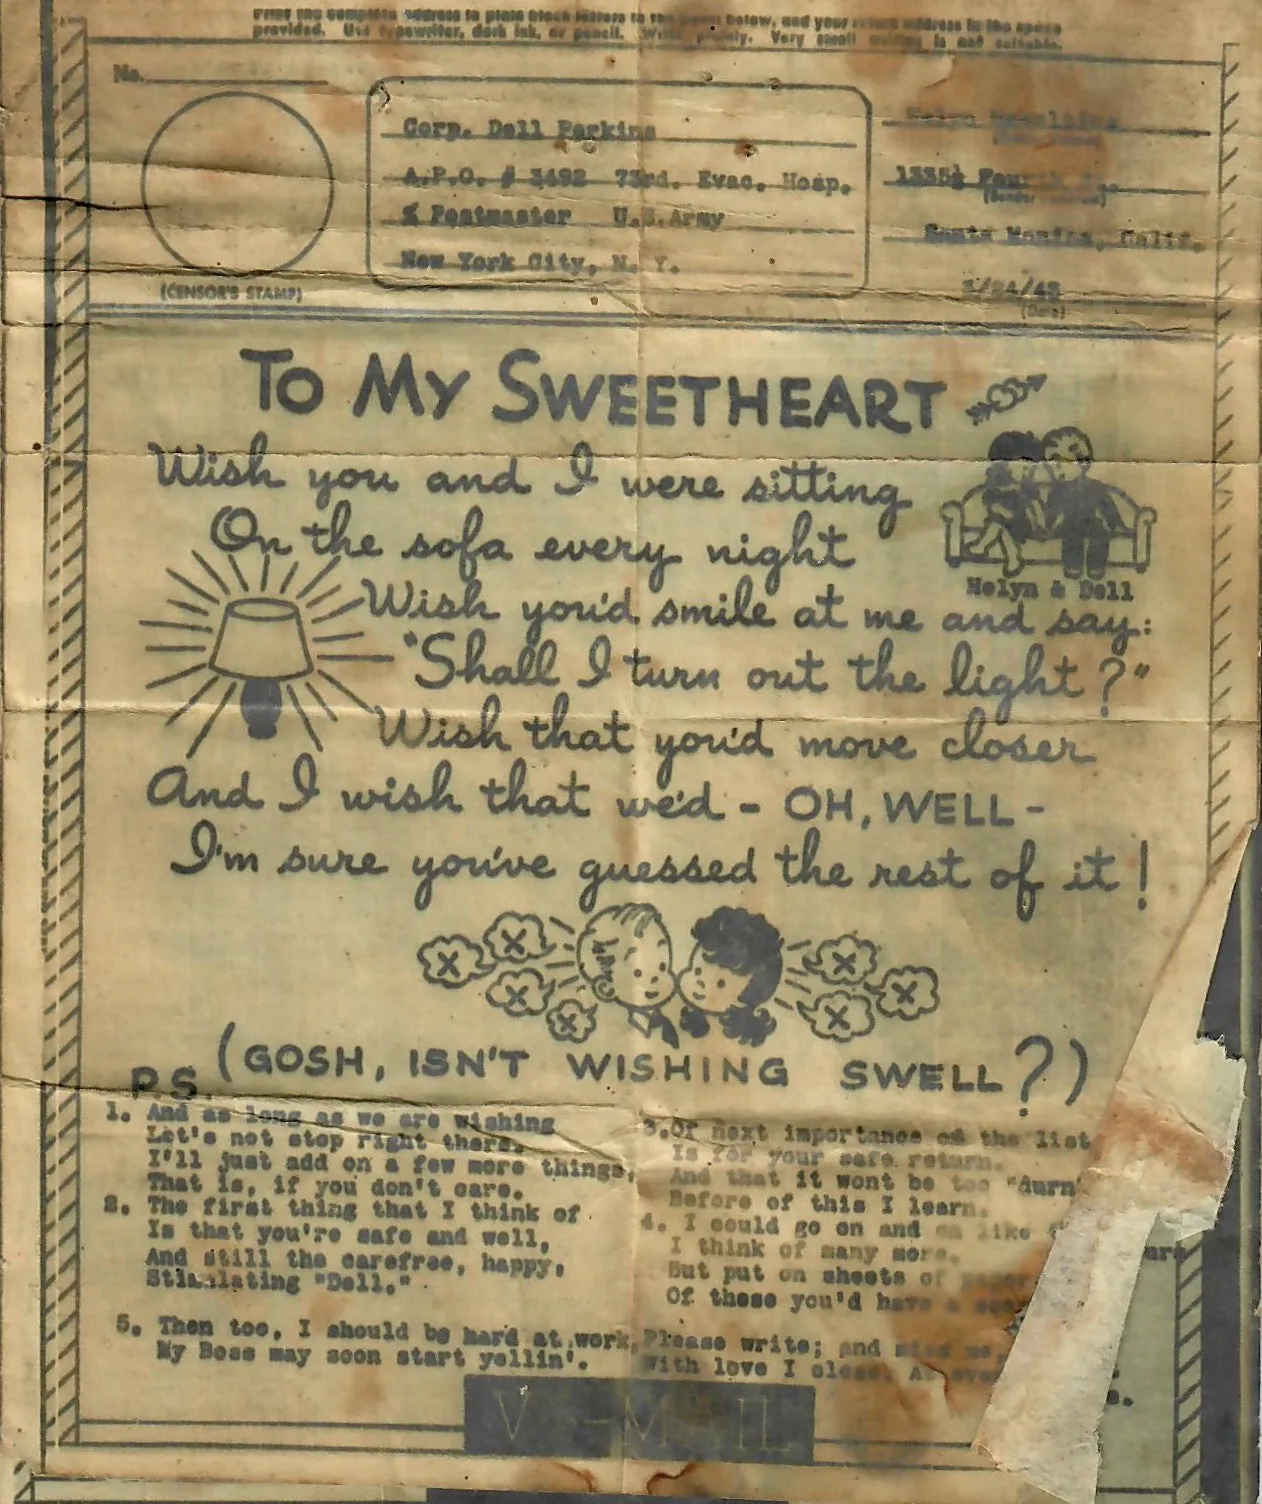 Print the complete address in plain block letters in the panel below, and your return address in the space
provided. Use typewriter, dark ink, or pencil. Write plainly. Very small writing is not suitable.
No.
(CENSOR'S STAMP)
Corp. Dell Perkins
A.P.O. # 3492 73rd. Evac. Hosp.
% Postmaster U.S.Army
New York City, N. Y.
Helyn
1335½ Fourth St.
(Sender's address)
Santa Monica, Calif.
3/24/45
(Date)
TO MY SWEETHEART
Wish you and I were sitting
On the sofa every night
Helyn & Dell
Wish you'd smile at me and say:
"Shall I turn out the light?"
Wish that you'd move closer
And I wish that we'd - OH, WELL -
I'm sure you've guessed the rest of it!
X X X X X X X X
(GOSH, ISN'T WISHING SWELL?)
P.S.
1. And as long as we are wishing
Let's not stop right there.
I'll just add on a few more things,
That is, if you don't care.
2. The first thing that I think of
Is that you're safe and well,
And still the carefree, happy,
Stimulating "Dell."
3. Of next importance on the list
Is for your safe return.
And that it wont be too "durn"
Before of this I learn.
4. I could go on and on like
I think of many more.
But put on sheets of paper
Of these you'd have a
5. Then too, I should be hard at work,
My Boss may soon start yellin'.
Please write; and miss me,
With love I close, As ever
V···–MAIL